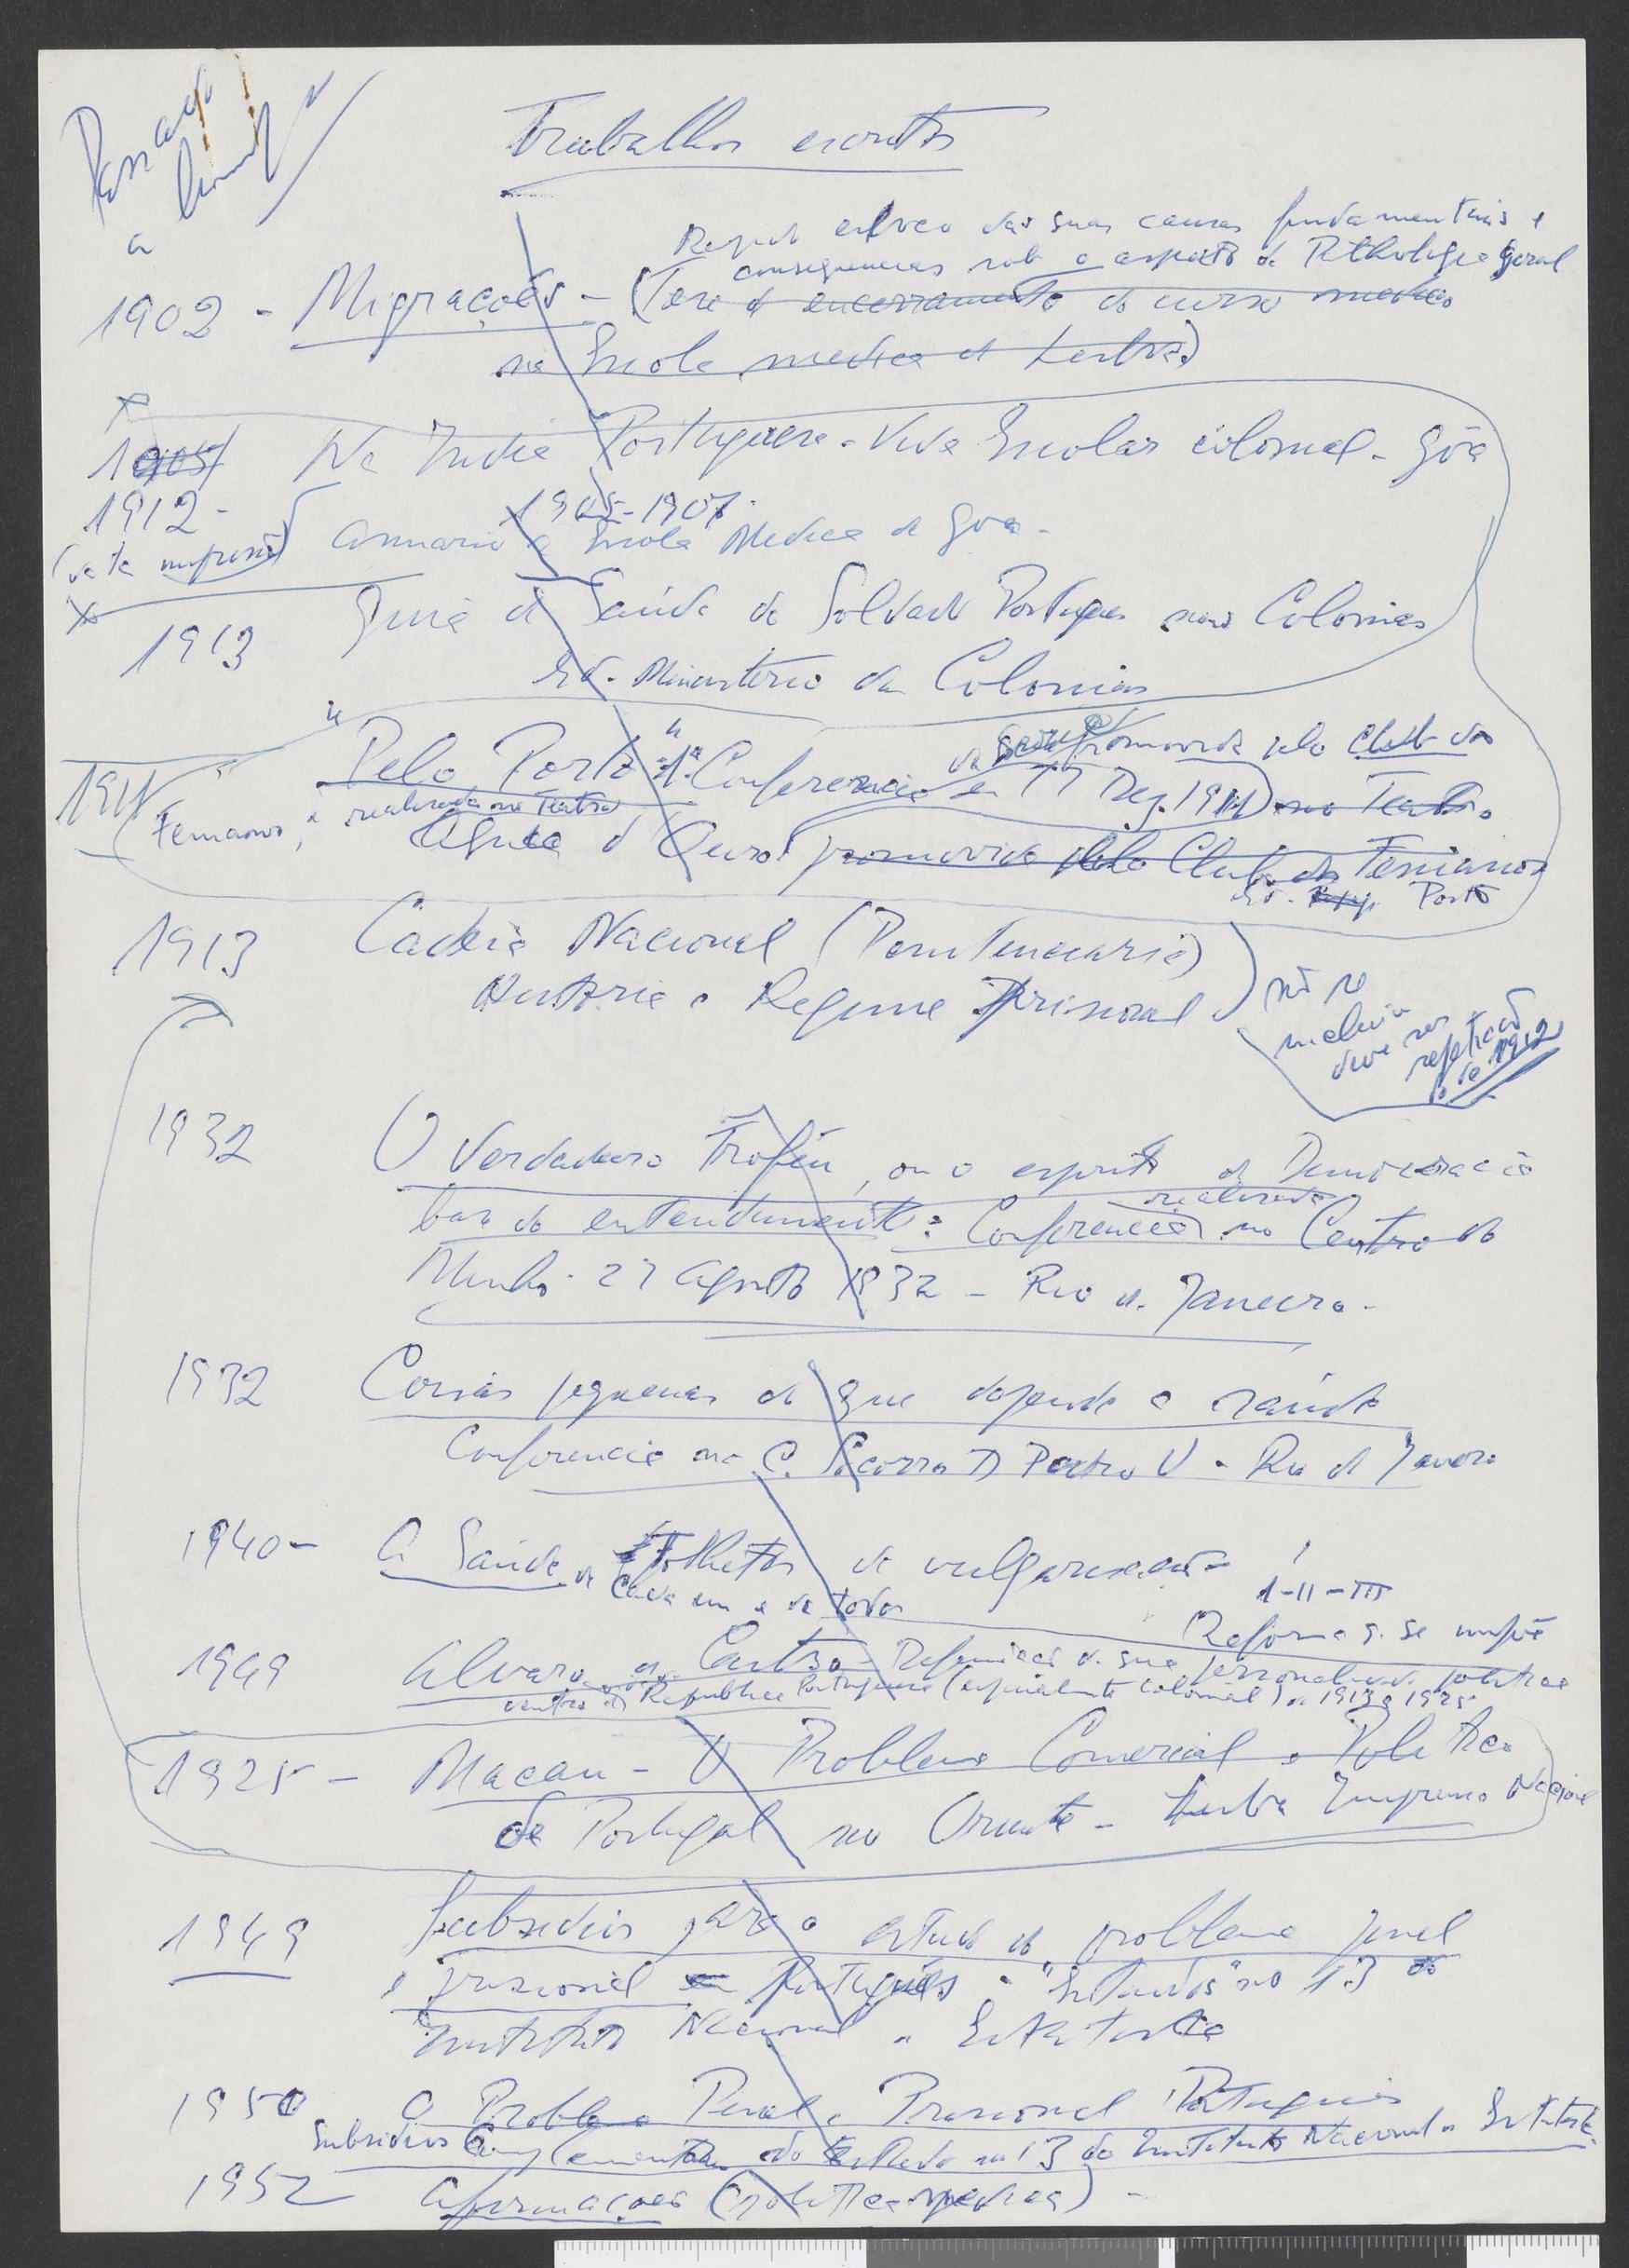 Passado
a limpo
Trabalhos escritos
Rapido esboço das suas causas fundamentais e
consequencias sob o aspecto de Pathologia geral
1902 - Migrações - (Tese de encerramento do curso medico
na Escola medica de Lisboa)
1905 Na India Portuguesa - Vida Escolar colonial - Gôa
1912 - 1905-1907.
(data impressão) Annuario da Escola Medica de Goa -
1913 Guia de Saúde do Soldado Portugues nas Colonias
Ed. Ministerio das Colonias
1911 "Pelo Porto" 1ª Conferencia em 17 Dez. 1911 promovida pelo Club dos no Teatro
Fenianos, realizada no Teatro
Aguia d'Ouro promovida pelo Club dos Fenianos
Ed. Porto
1913 Cadeia Nacional (Penitenciaria)
Historia e Regime Prisional
não se
incluiu
deve ser
repetição
de 1912
1932 O Verdadeiro Troféu, ou o espirito de Democracia
base do entendimento: Conferencia realizada no Centro do
Minho - 27 Agosto 1932 - Rio de Janeiro -
1932 Coisas pequenas de que depende a saúde
Conferencia na C. Socorros D Pedro V - Rio de Janeiro
1940 - A Saúde de Folhetos de vulgarização
cada um e de todos
1-II-III
Reforma q. se impõe
1949 Alvaro de Castro - Definição da sua personalidade politica
dentro da Republica Portuguesa (expoente colonial) de 1913 a 1925
1925 - Macau - O Problema Comercial e Politico
de Portugal no Oriente - Lisboa Imprensa Nacional
1949 Subsidios para o estudo do problema penal
e prisional Português - "Estudos" nº 13 do
Instituto Nacional de Estatistica
1950 O Problema Penal e Prisional Português
Subsidios Complementares do Estudo nº 13 do Instituto Nacional de Estatistica
1952 Afirmações (politica medica) -